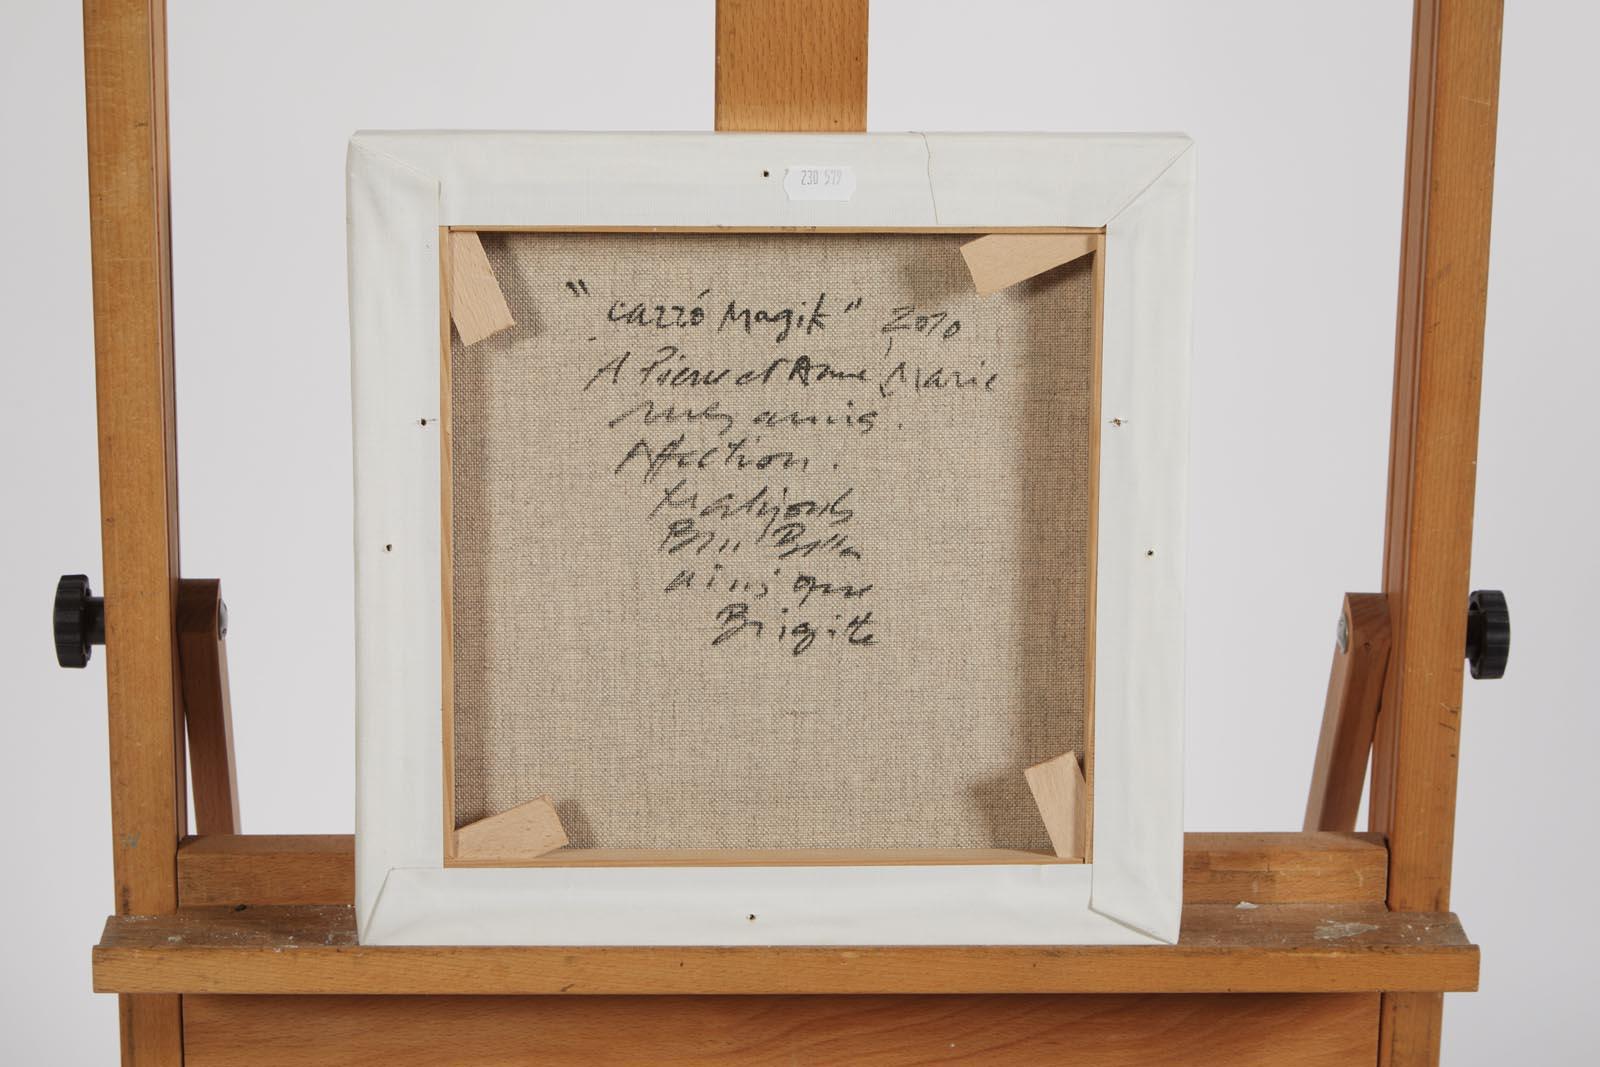 230 579
"Cazzó Magik" 2010
A Pierre et Anne Marie
mes amis.
Affection.
ainsi que
Brigitte